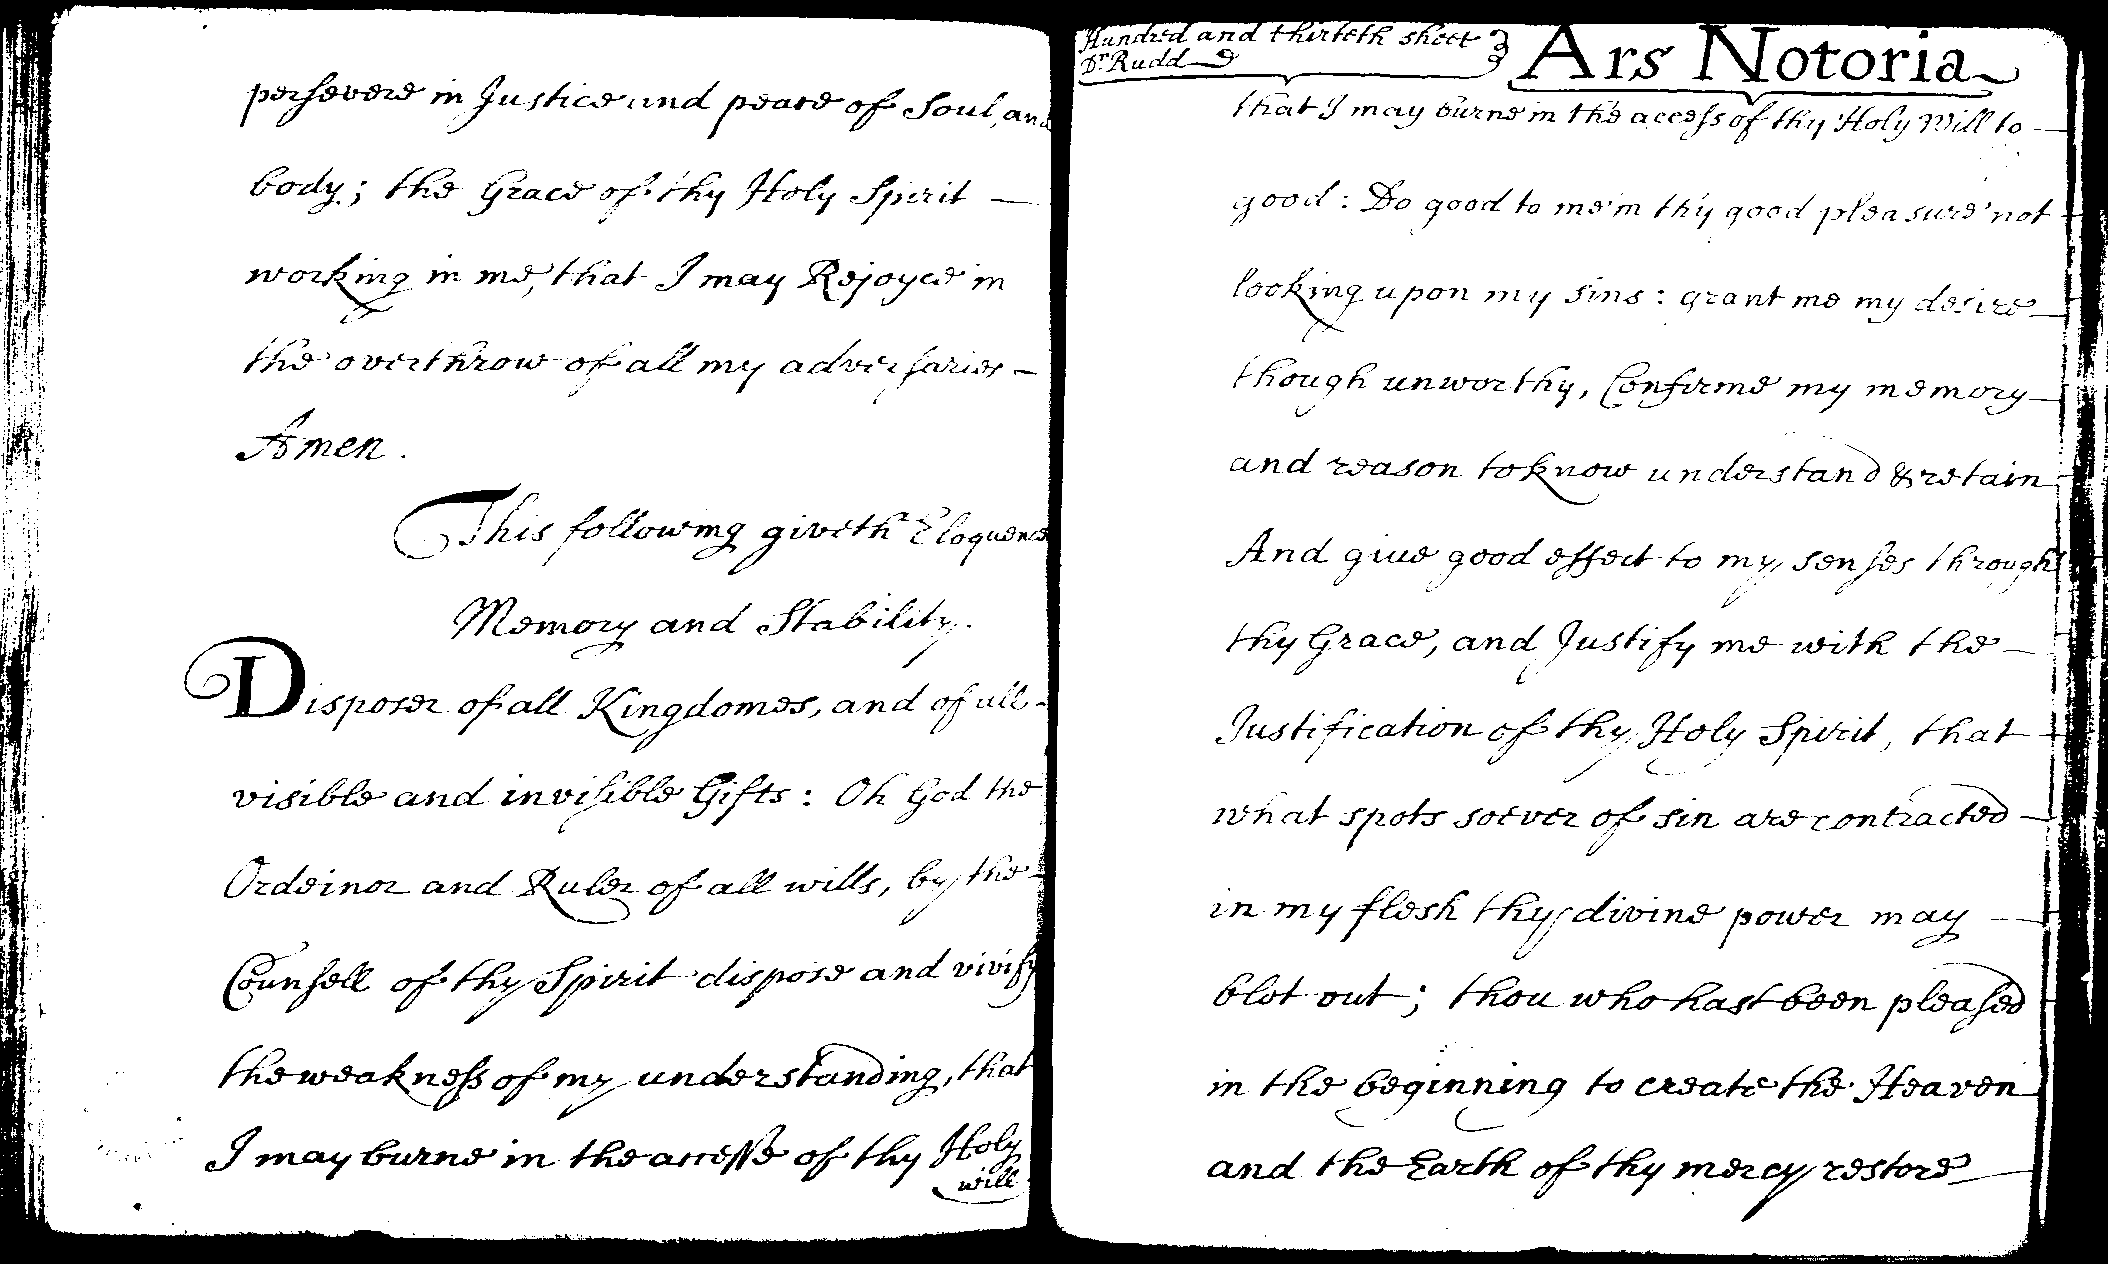 persevere in Justice and peace of Soul, and
body; the Grace of thy Holy Spirit —
working in me, that I may Rejoyce in
the overthrow of all my adversaries —
Amen.
This following giveth Eloquence
Memory and Stability.
Disposer of all Kingdomes, and of all -
visible and invisible Gifts: Oh God the
Ordeinor and Ruler of all wills, by the -
Counsell of thy Spirit dispose and vivify
the weakness of my understanding, that
I may burne in the accesse of thy Holy
will
Hundred and thirteth sheet
Dr Rudd
Ars Notoria
that I may burne in the access of thy Holy Will to —
good: Do good to me in thy good pleasure not -
looking upon my sins: grant me my desire —
though unworthy, Confirme my memory —
and reason to know understand & retain
And give good effect to my senses through
thy Grace, and Justify me with the —
Justification of thy Holy Spirit, that —
what spots soever of sin are contracted —
in my flesh thy divine power may — —
blot out; thou who hast been pleased
in the beginning to create the Heaven
and the Earth of thy mercy restore —